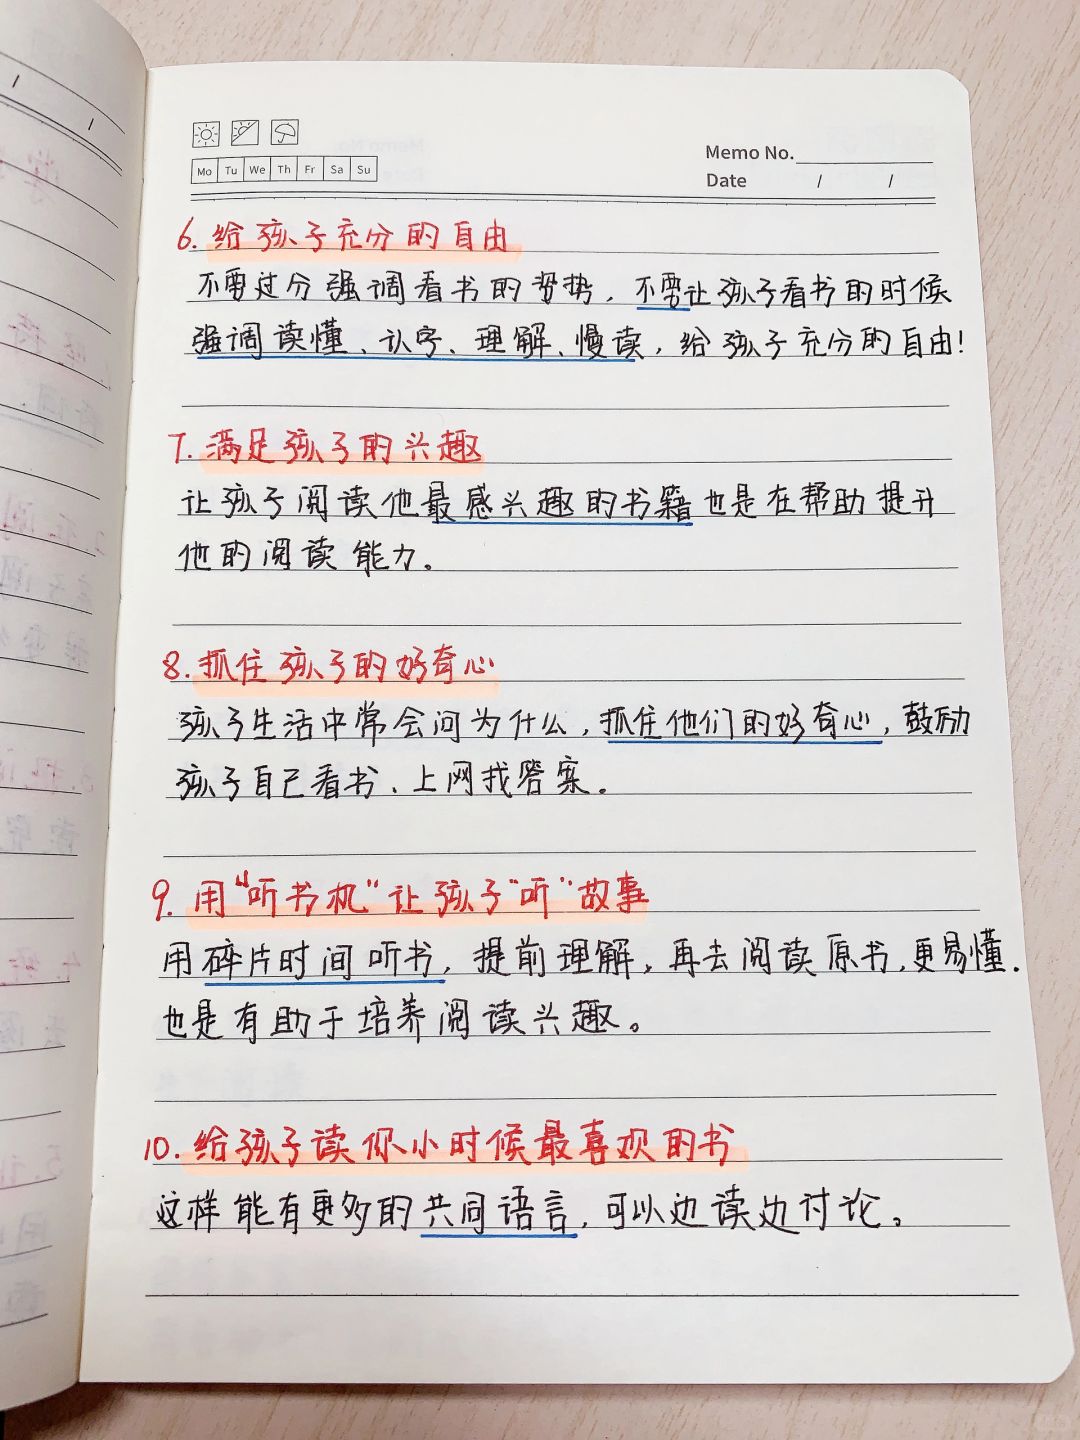 Mo Tu We Th Fr Sa Su
Memo No.
Date / /
6. 给孩子充分的自由
不要过分强调看书的姿势，不要让孩子看书的时候
强调读懂、认字、理解、慢读，给孩子充分的自由！
7. 满足孩子的兴趣
让孩子阅读他最感兴趣的书籍也是在帮助提升
他的阅读能力。
8. 抓住孩子的好奇心
孩子生活中常会问为什么，抓住他们的好奇心，鼓励
孩子自己看书、上网找答案。
9. 用“听书机”让孩子“听”故事
用碎片时间听书，提前理解，再去阅读原书，更易懂．
也是有助于培养阅读兴趣。
10. 给孩子读你小时候最喜欢的书
这样能有更多的共同语言，可以边读边讨论。